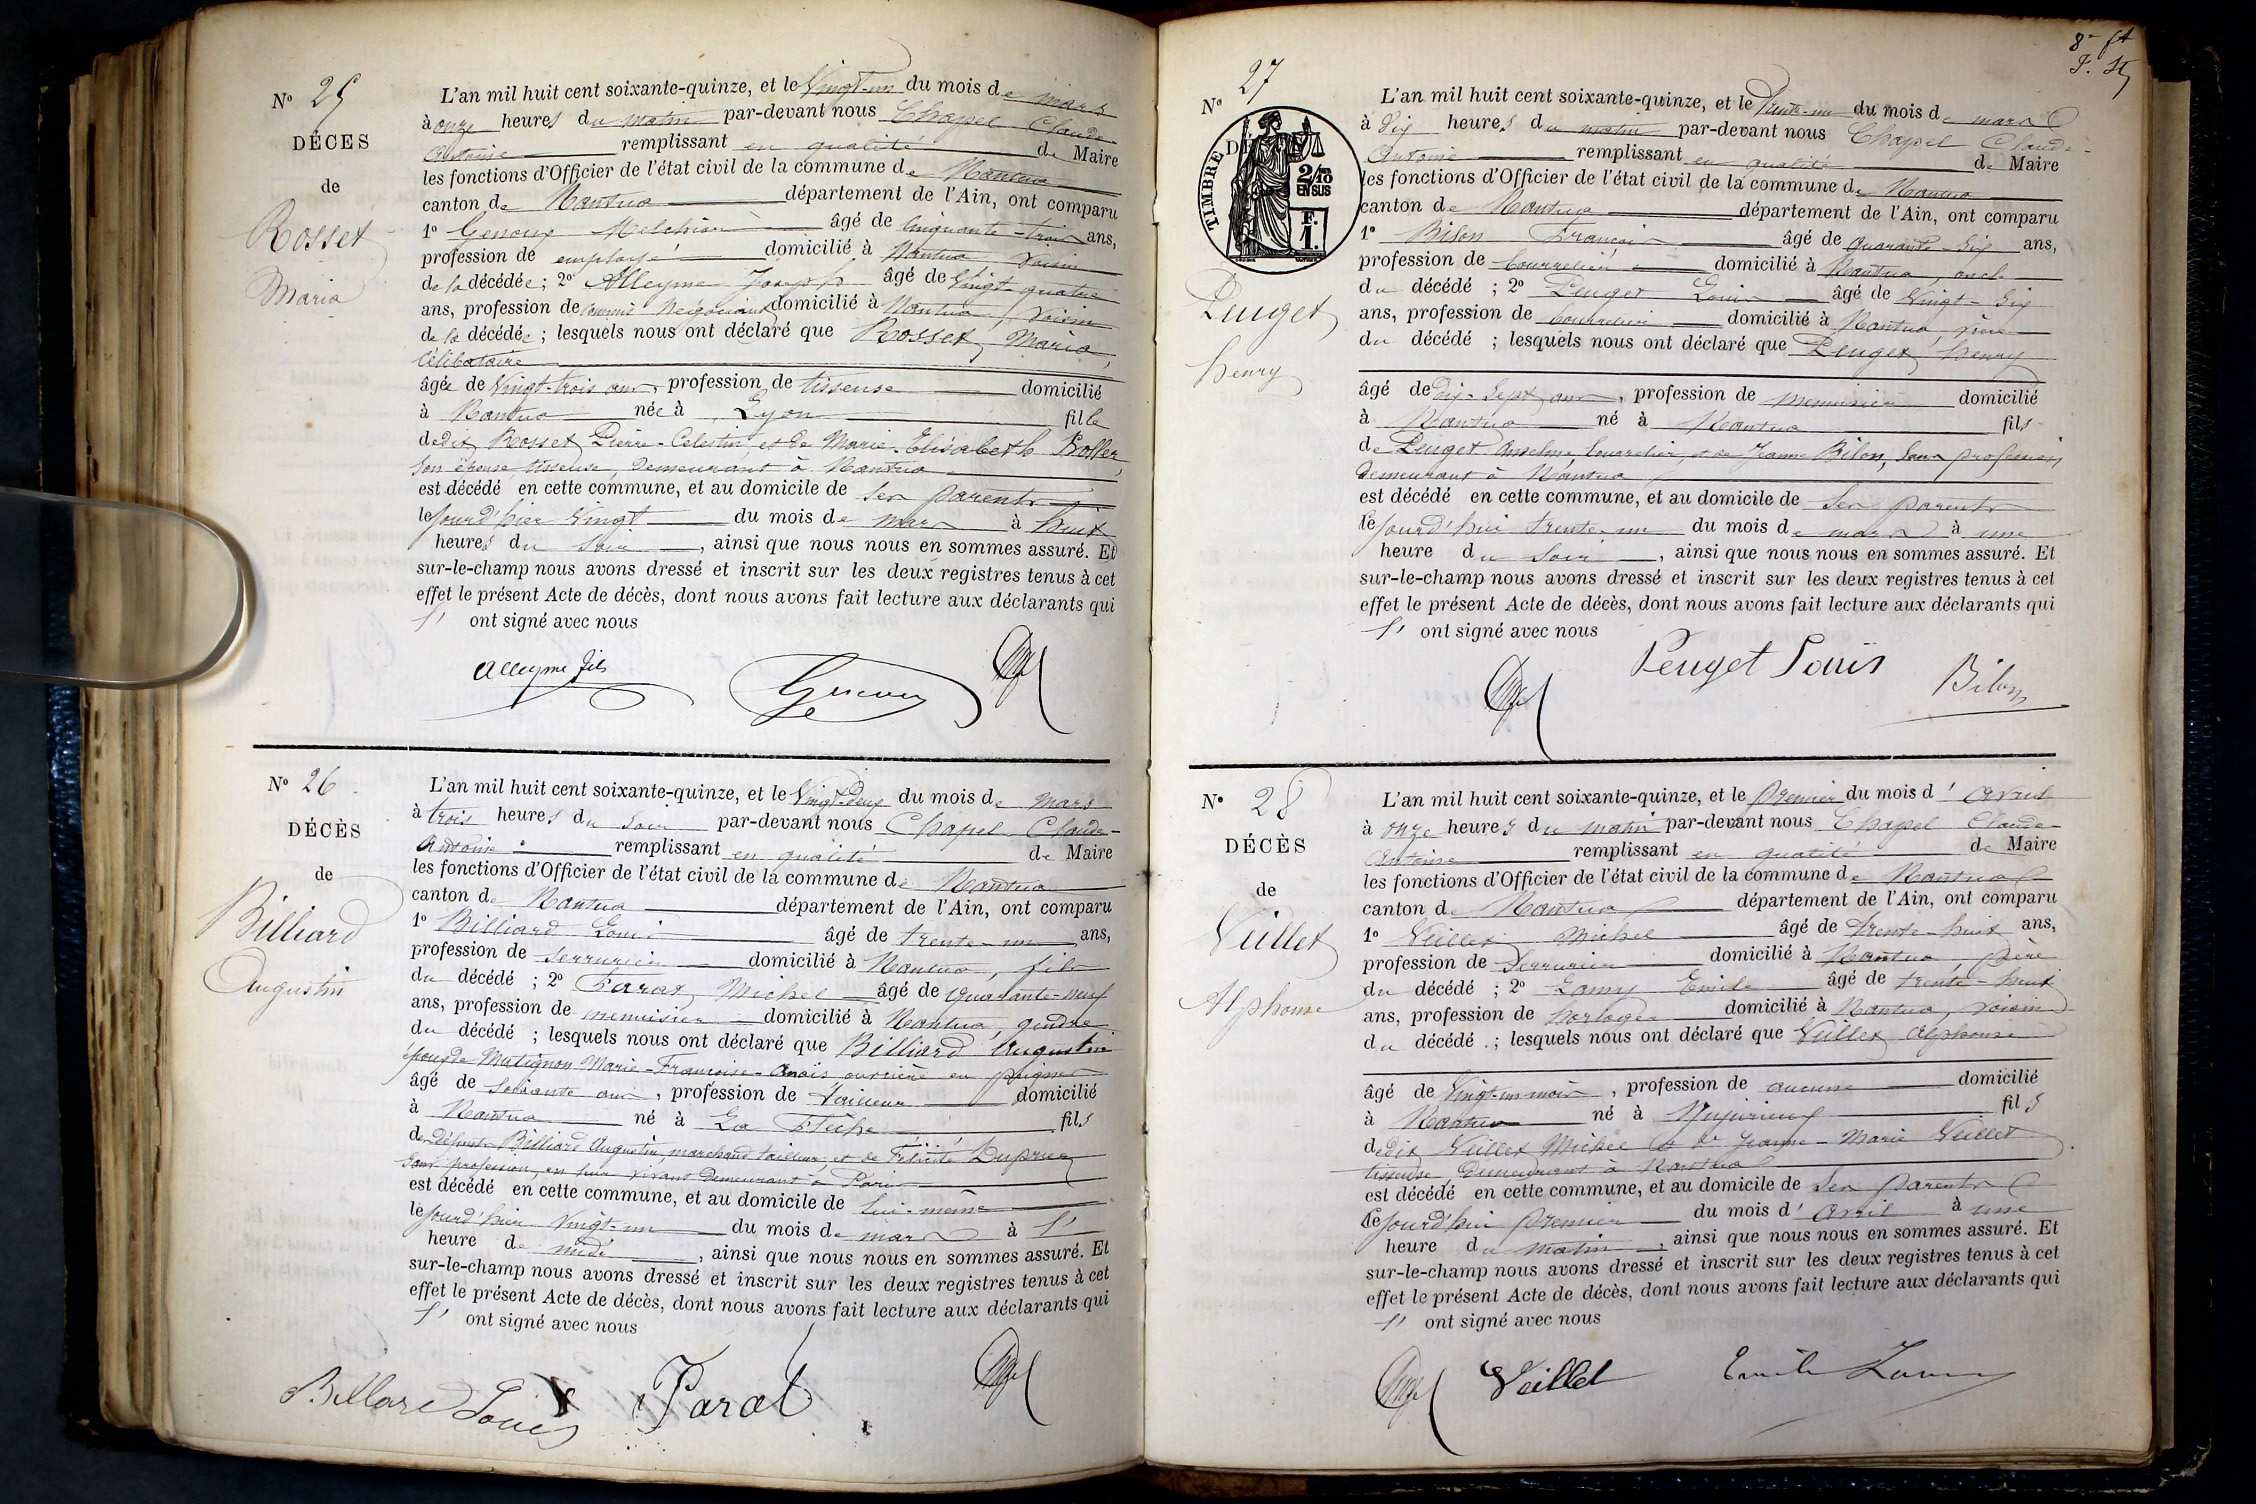 N° 25
DÉCES
de
Rosset
Maria
L'an mil huit cent soixante-quinze, et le Vingt-un du mois de mars
à onze heures du matin par-devant nous Chapel Claude
Antoine remplissant en qualité de Maire
les fonctions d'Officier de l'état civil de la commune de Nantua
canton de Nantua département de l'Ain, ont comparu
1° Genoux Melchior âgé de Cinquante-trois ans,
profession de employé domicilié à Nantua voisin
de la décédée ; 2° Alleyme Joseph âgé de Vingt-quatre
ans, profession de Négociant domicilié à Nantua, voisin
de la décédée ; lesquels nous ont déclaré que Rosset, Maria,
Célibataire
âgée de Vingt-trois ans, profession de tisseuse domicilié
à Nantua née à Lyon fille
de dit Rosset Pierre-Celestin, et de Marie-Elisabeth Boller,
son épouse tisseuse, demeurant à Nantua
est décédé en cette commune, et au domicile de ses parents
le jourd'hier Vingt du mois de mars à huit
heures du soir, ainsi que nous nous en sommes assuré. Et
sur-le-champ nous avons dressé et inscrit sur les deux registres tenus à cet
effet le présent Acte de décès, dont nous avons fait lecture aux déclarants qui
l' ont signé avec nous
Alleyme fils
N° 26
DÉCÈS
de
Billiard
Augustin
L'an mil huit cent soixante-quinze, et le Vingt-deux du mois de Mars
à trois heures du soir par-devant nous Chapel Claude-
Antoine remplissant en qualité de Maire
les fonctions d'Officier de l'état civil de la commune de Nantua
canton de Nantua département de l'Ain, ont comparu
1° Billiard Louis âgé de trente-un ans,
profession de serrurier domicilié à Nantua, fils
du décédé ; 2° Parat, Michel âgé de quarante-neuf
ans, profession de menuisier domicilié à Nantua, gendre
du décédé ; lesquels nous ont déclaré que Billiard Augustin
époux de Matignon Marie-Françoise-Anaïs ouvrière en peignes
âgé de soixante ans, profession de tailleur domicilié
à Nantua né à La Flèche fils
de défunts Billiard Augustin, marchand tailleur, et de Félicité Duprez
sans profession, en leur vivant demeurant à Paris
est décédé en cette commune, et au domicile de lui-même
le jourd'hier Vingt-un du mois de mars à l'
heure de midi, ainsi que nous nous en sommes assuré. Et
sur-le-champ nous avons dressé et inscrit sur les deux registres tenus à cet
effet le présent Acte de décès, dont nous avons fait lecture aux déclarants qui
l' ont signé avec nous
Billard Louis Parat
N° 27
TIMBRE
2/10
EN SUS
F.
1.
Peuget
henry
L'an mil huit cent soixante-quinze, et le Trente-un du mois de mars
à dix heures du matin par-devant nous Chapel Claude-
Antoine remplissant en qualité de Maire
les fonctions d'Officier de l'état civil de la commune de Nantua
canton de Nantua département de l'Ain, ont comparu
1° Bilon François âgé de quarante-six ans,
profession de bourrelier domicilié à Nantua, oncle
du décédé ; 2° Peuget Louis âgé de Vingt-six
ans, profession de bourrelier domicilié à Nantua frère
du décédé ; lesquels nous ont déclaré que Peuget, henry
âgé de dix-sept ans, profession de menuisier domicilié
à Nantua né à Nantua fils
de Peuget Anselme, bourrelier, et de Jeanne Bilon, sans profession,
demeurant à Nantua
est décédé en cette commune, et au domicile de ses parents
le jourd'hui trente-un du mois de mars à une
heure du soir, ainsi que nous nous en sommes assuré. Et
sur-le-champ nous avons dressé et inscrit sur les deux registres tenus à cet
effet le présent Acte de décès, dont nous avons fait lecture aux déclarants qui
l' ont signé avec nous
Peuget Louis Bilon
N° 28
DÉCÈS
de
Veillet
Alphonse
L'an mil huit cent soixante-quinze, et le Premier du mois d'avril
à onze heures du matin par-devant nous Chapel Claude-
Antoine remplissant en qualité de Maire
les fonctions d'Officier de l'état civil de la commune de Nantua
canton de Nantua département de l'Ain, ont comparu
1° Veillet Michel âgé de trente-huit ans,
profession de Serrurier domicilié à Nantua, père
du décédé ; 2° Lamy Emile âgé de trente-huit
ans, profession de horloger domicilié à Nantua, voisin
du décédé ; lesquels nous ont déclaré que Veillet Alphonse
âgé de Vingt-un mois, profession de aucune domicilié
à Nantua né à fils
de dit Veillet Michel & de Jeanne-Marie Veillet
tisseuse, demeurant à Nantua
est décédé en cette commune, et au domicile de ses parents
le jourd'hui premier du mois d'avril à une
heure du matin, ainsi que nous nous en sommes assuré. Et
sur-le-champ nous avons dressé et inscrit sur les deux registres tenus à cet
effet le présent Acte de décès, dont nous avons fait lecture aux déclarants qui
l' ont signé avec nous
Veillet Emile Lamy